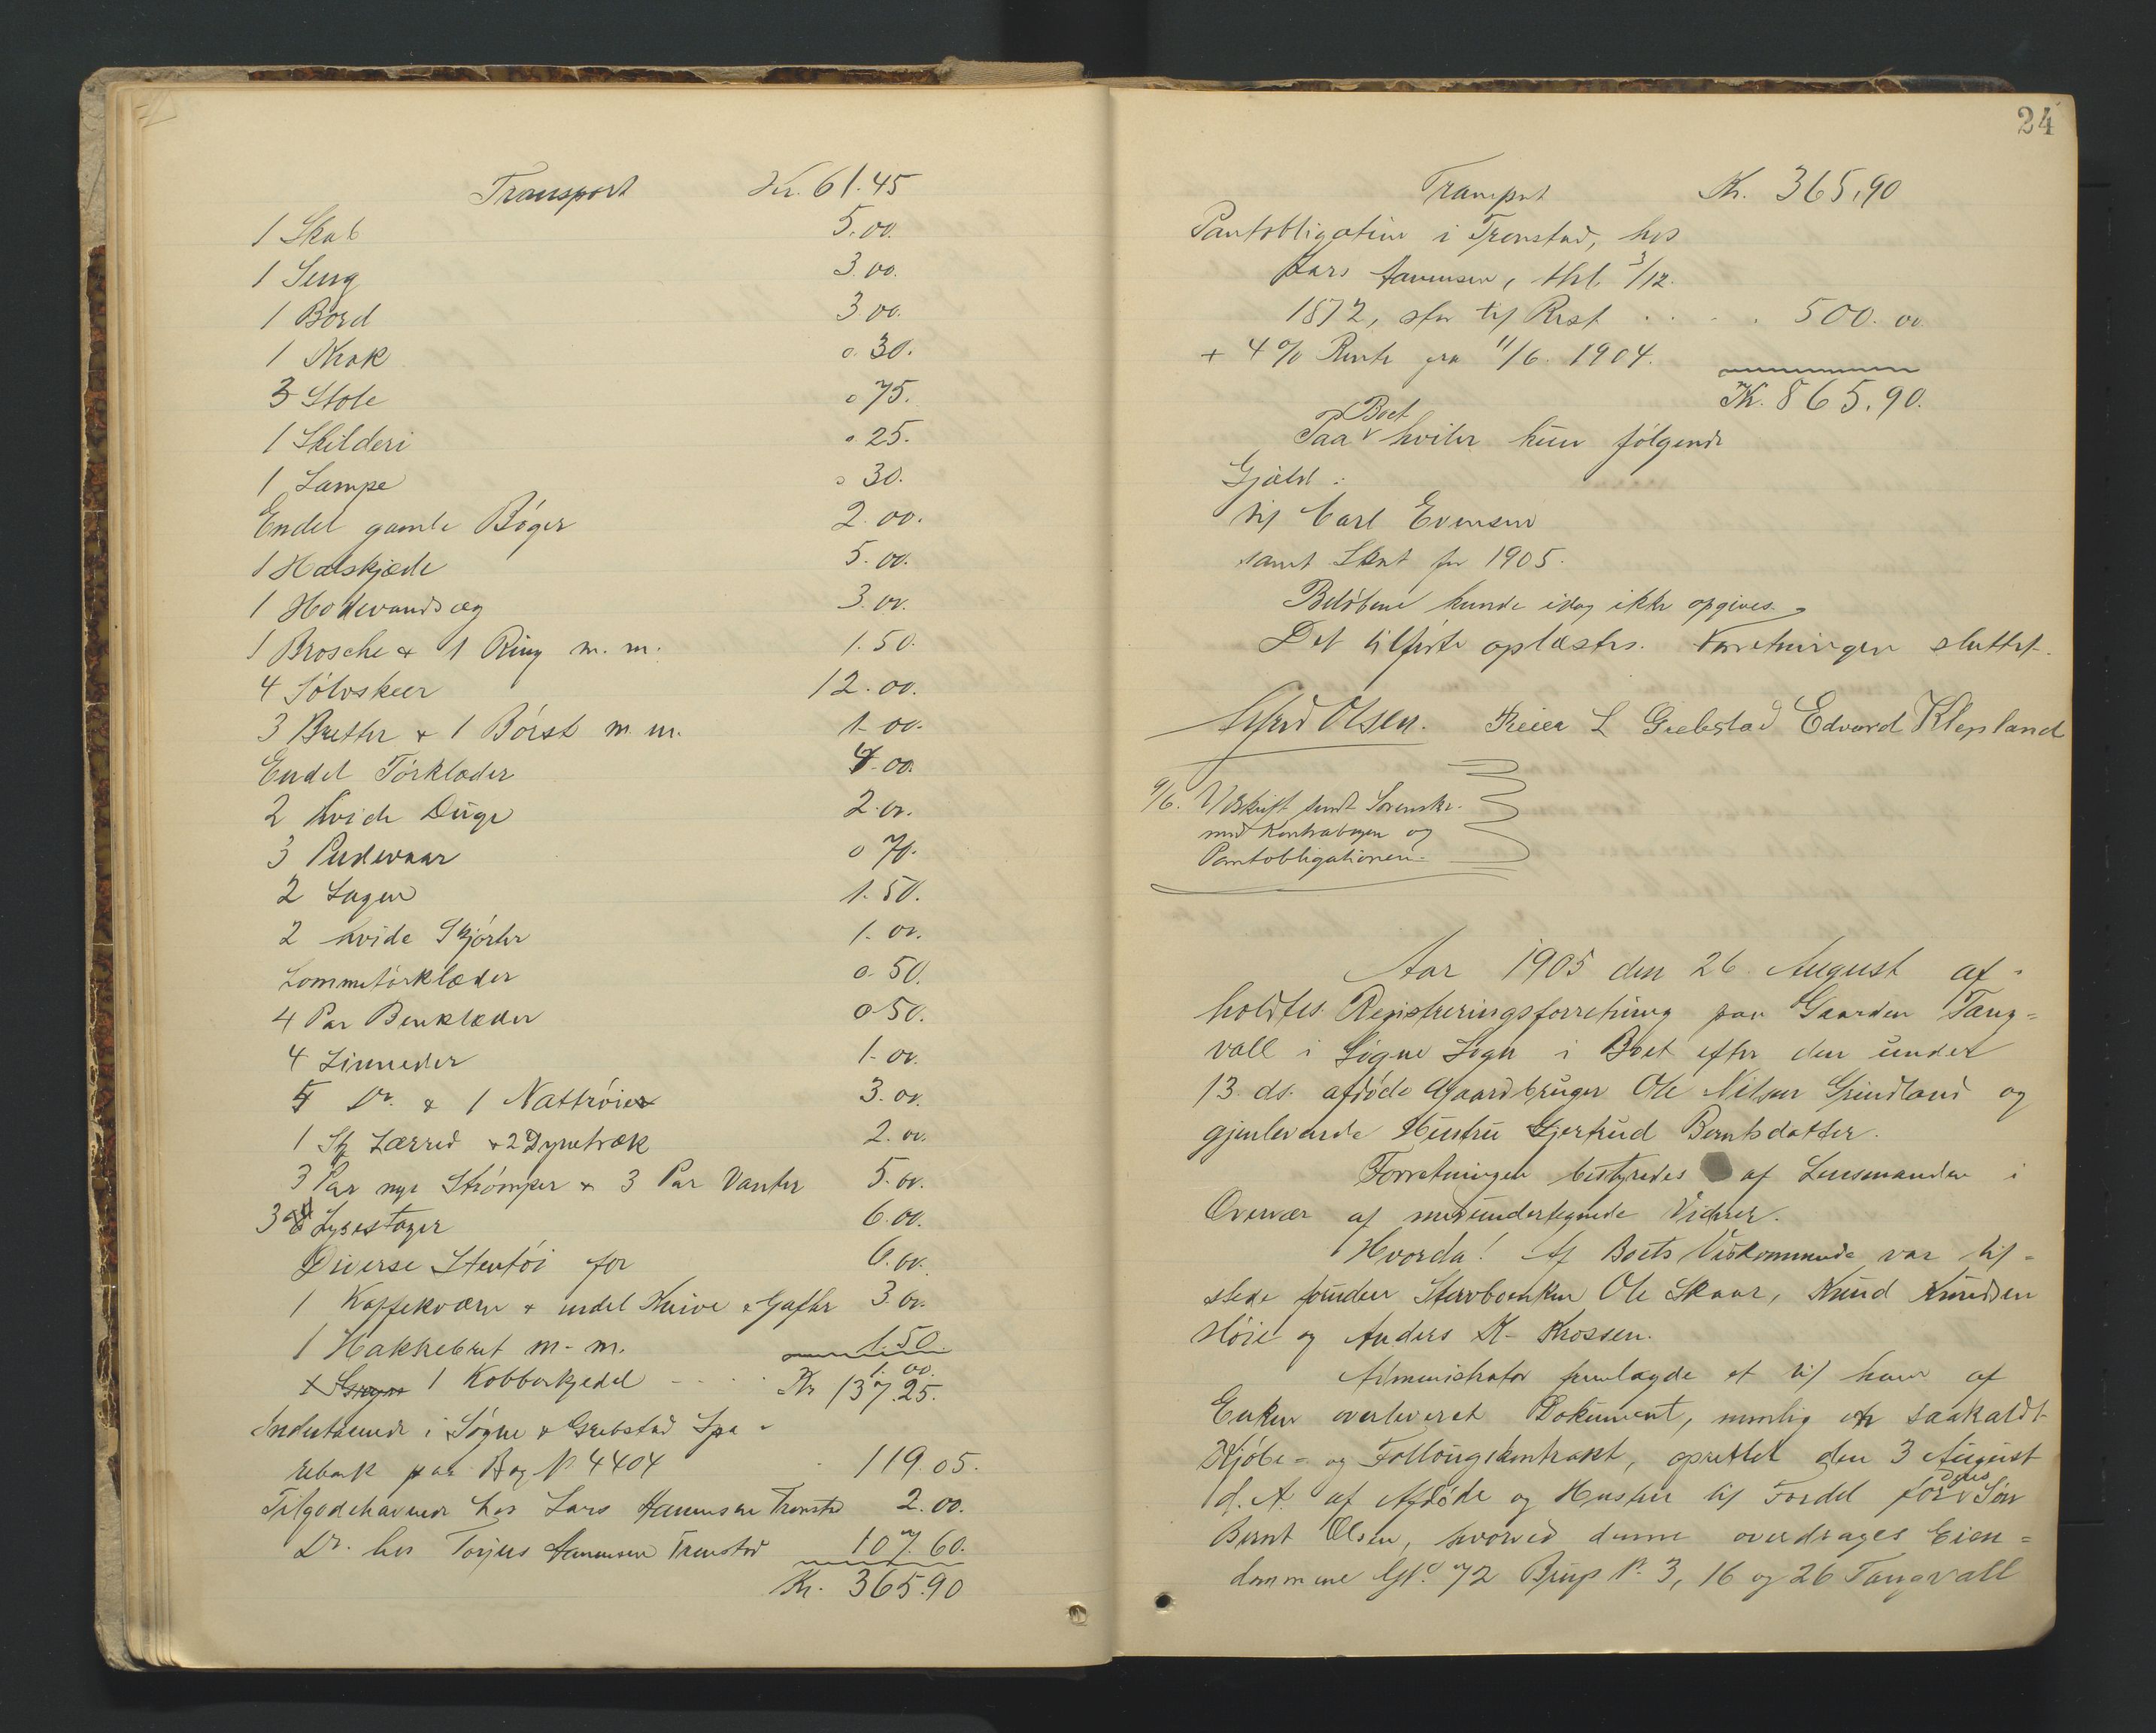 Transport Kr. 61.45
1 Skab 5.00.
1 Seng 3.00.
1 Bord 3.00.
1 Krak 0.30.
3 Stole 0 75.
1 Skilderi 0.25.
1 Lampe 0 30.
Endel gamle Bøger 2.00.
1 Halskjæde 5.00.
1 Hodevandsæg 3.00.
1 Brosche & 1 Ring m. m. 1.50.
4 Sølvskeer 12.00.
3 Bretter & 1 Børst m. m. 1.00.
Endel Tørklæder 4.00.
2 hvide Duge 2.00.
3 Pudevaar 0 70.
2 Lagen 1.50.
2 hvide Skjørter 1.00.
Lommetørklæder 0.50.
4 Par Benklæder 0 50.
4 Linneder 1.00.
5 Do. & 1 Nattrøie 3.00.
1 St. Lærred & 2 Dynetræk 2.00.
3 Par nye Strømper & 3 Par Vanter 5.00.
3 Lysestager 6.00.
Diverse Stentøi for 6.00.
1 Kaffekværn & endel Knive & Gafler 3.00.
1 Hakkebret m. m. 1.50.
1 Kobberkjedel - - - - 1.00.
Kr 137.25.
Indestaaende i Søgne & Grebstad Spa-
rebank paa Bog No 4404 119.05.
Tilgodehavende hos Lars Aanensen Trenstad 2.00.
Do. hos Torjus Aanensen Trenstad 107.60.
Kr. 365.90
24
Transport Kr. 365,90
Pantobligation i Trenstad, hos
Lars Aanensen, thl. 3/12.
1872, stor til Rest . . . . 500.00
+ 4 % Rente fra 11/6. 1904.
Kr. 865.90.
Paa Boet hviler kun følgende
Gjæld:
til Carl Evensen
samt Skat for 1905.
Beløbene kunde idag ikke opgives.
Det tilførte oplæstes. Forretningen sluttet.
Olsen. Peder L Grebstad Edvard Klepland
9/6. Udskrift sendt Sorenskr.
med Kontrabogen og
Pantobligationen.
Aar 1905 den 26 August af-
holdtes Registreringsforretning paa Gaarden Tang=
vall i Søgne Sogn i Boet efter den under
13 ds. afdøde Gaardbruger Ole Nilsen Grindland og
gjenlevende Hustru Gjertrud Berntsdatter.
Forretningen bestyredes af Lensmanden i
Overvær af medundertegnede Vidner.
Hvorda! Af Boets Vedkommende var til-
stede foruden Stervboenken Ole Skaar, Knud Knudsen
Høie og Anders K. Krossen.
Administrator fremlagde et til ham af
Enken overleveret Dokument, nemlig en saakaldt
Kjøbe- og Follougskontrakt, oprettet den 3 August
d. A. af Afdøde og Hustru til Fordel for deres Søn
Bernt Olsen, hvorved denne overdrages Eien=
dommene Gd. 72 Brug No 3, 16 og 26 Tangvall